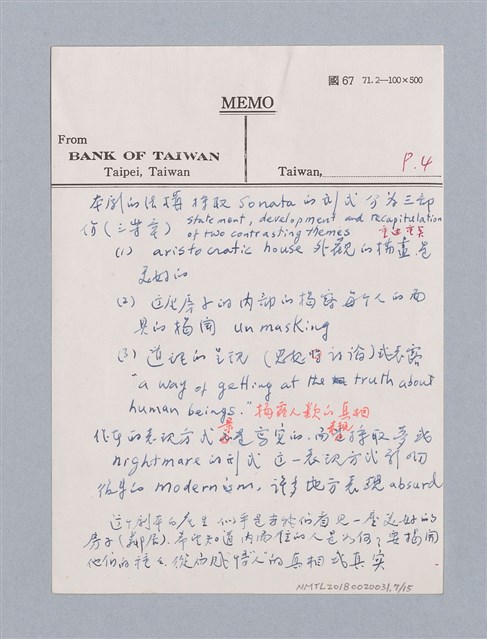 國 67 71.2—100×500
MEMO
From
BANK OF TAIWAN
Taipei, Taiwan
Taiwan,
P.4
本劇的結構採取 Sonata 的形式分為三部
份（三步奏） statement, development and recapitulation
of two contrasting themes
(1) aristocratic house 外觀的描畫是
美好的
(2) 這座房子的內部的揭露每個人的面
具的揭開 unmasking
(3) 道理的呈現（思想 討論）或表露
"a way of getting at the truth about
human beings." 揭露人類的真相
作者的表現方式 不是寫實的，而是採取夢或
nightmare 的形式 這一表現方式引向
後來的 modernism, 許多地方表現 absurd
這個劇本的產生 似乎是 他看見一座美好的
房子（鄰居）希望知道內面住的人是如何？要揭開
他們的 從而 人的真相或真實
NMTL20180020031, 7/15